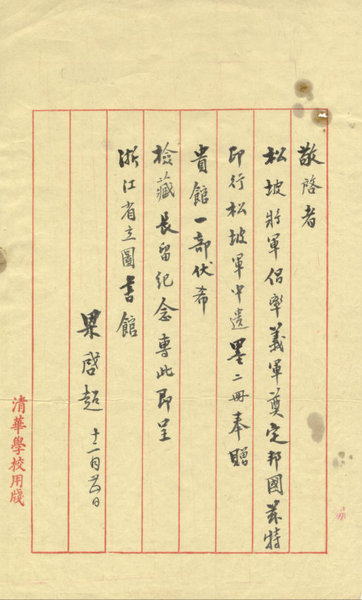 敬啓者
松坡將軍倡率義軍奠定邦國茲特
印行松坡軍中遺墨二冊奉贈
貴館一部伏希
檢藏長留紀念專此即呈
浙江省立圖書館
梁啓超 十一月 日
清華學校用牋